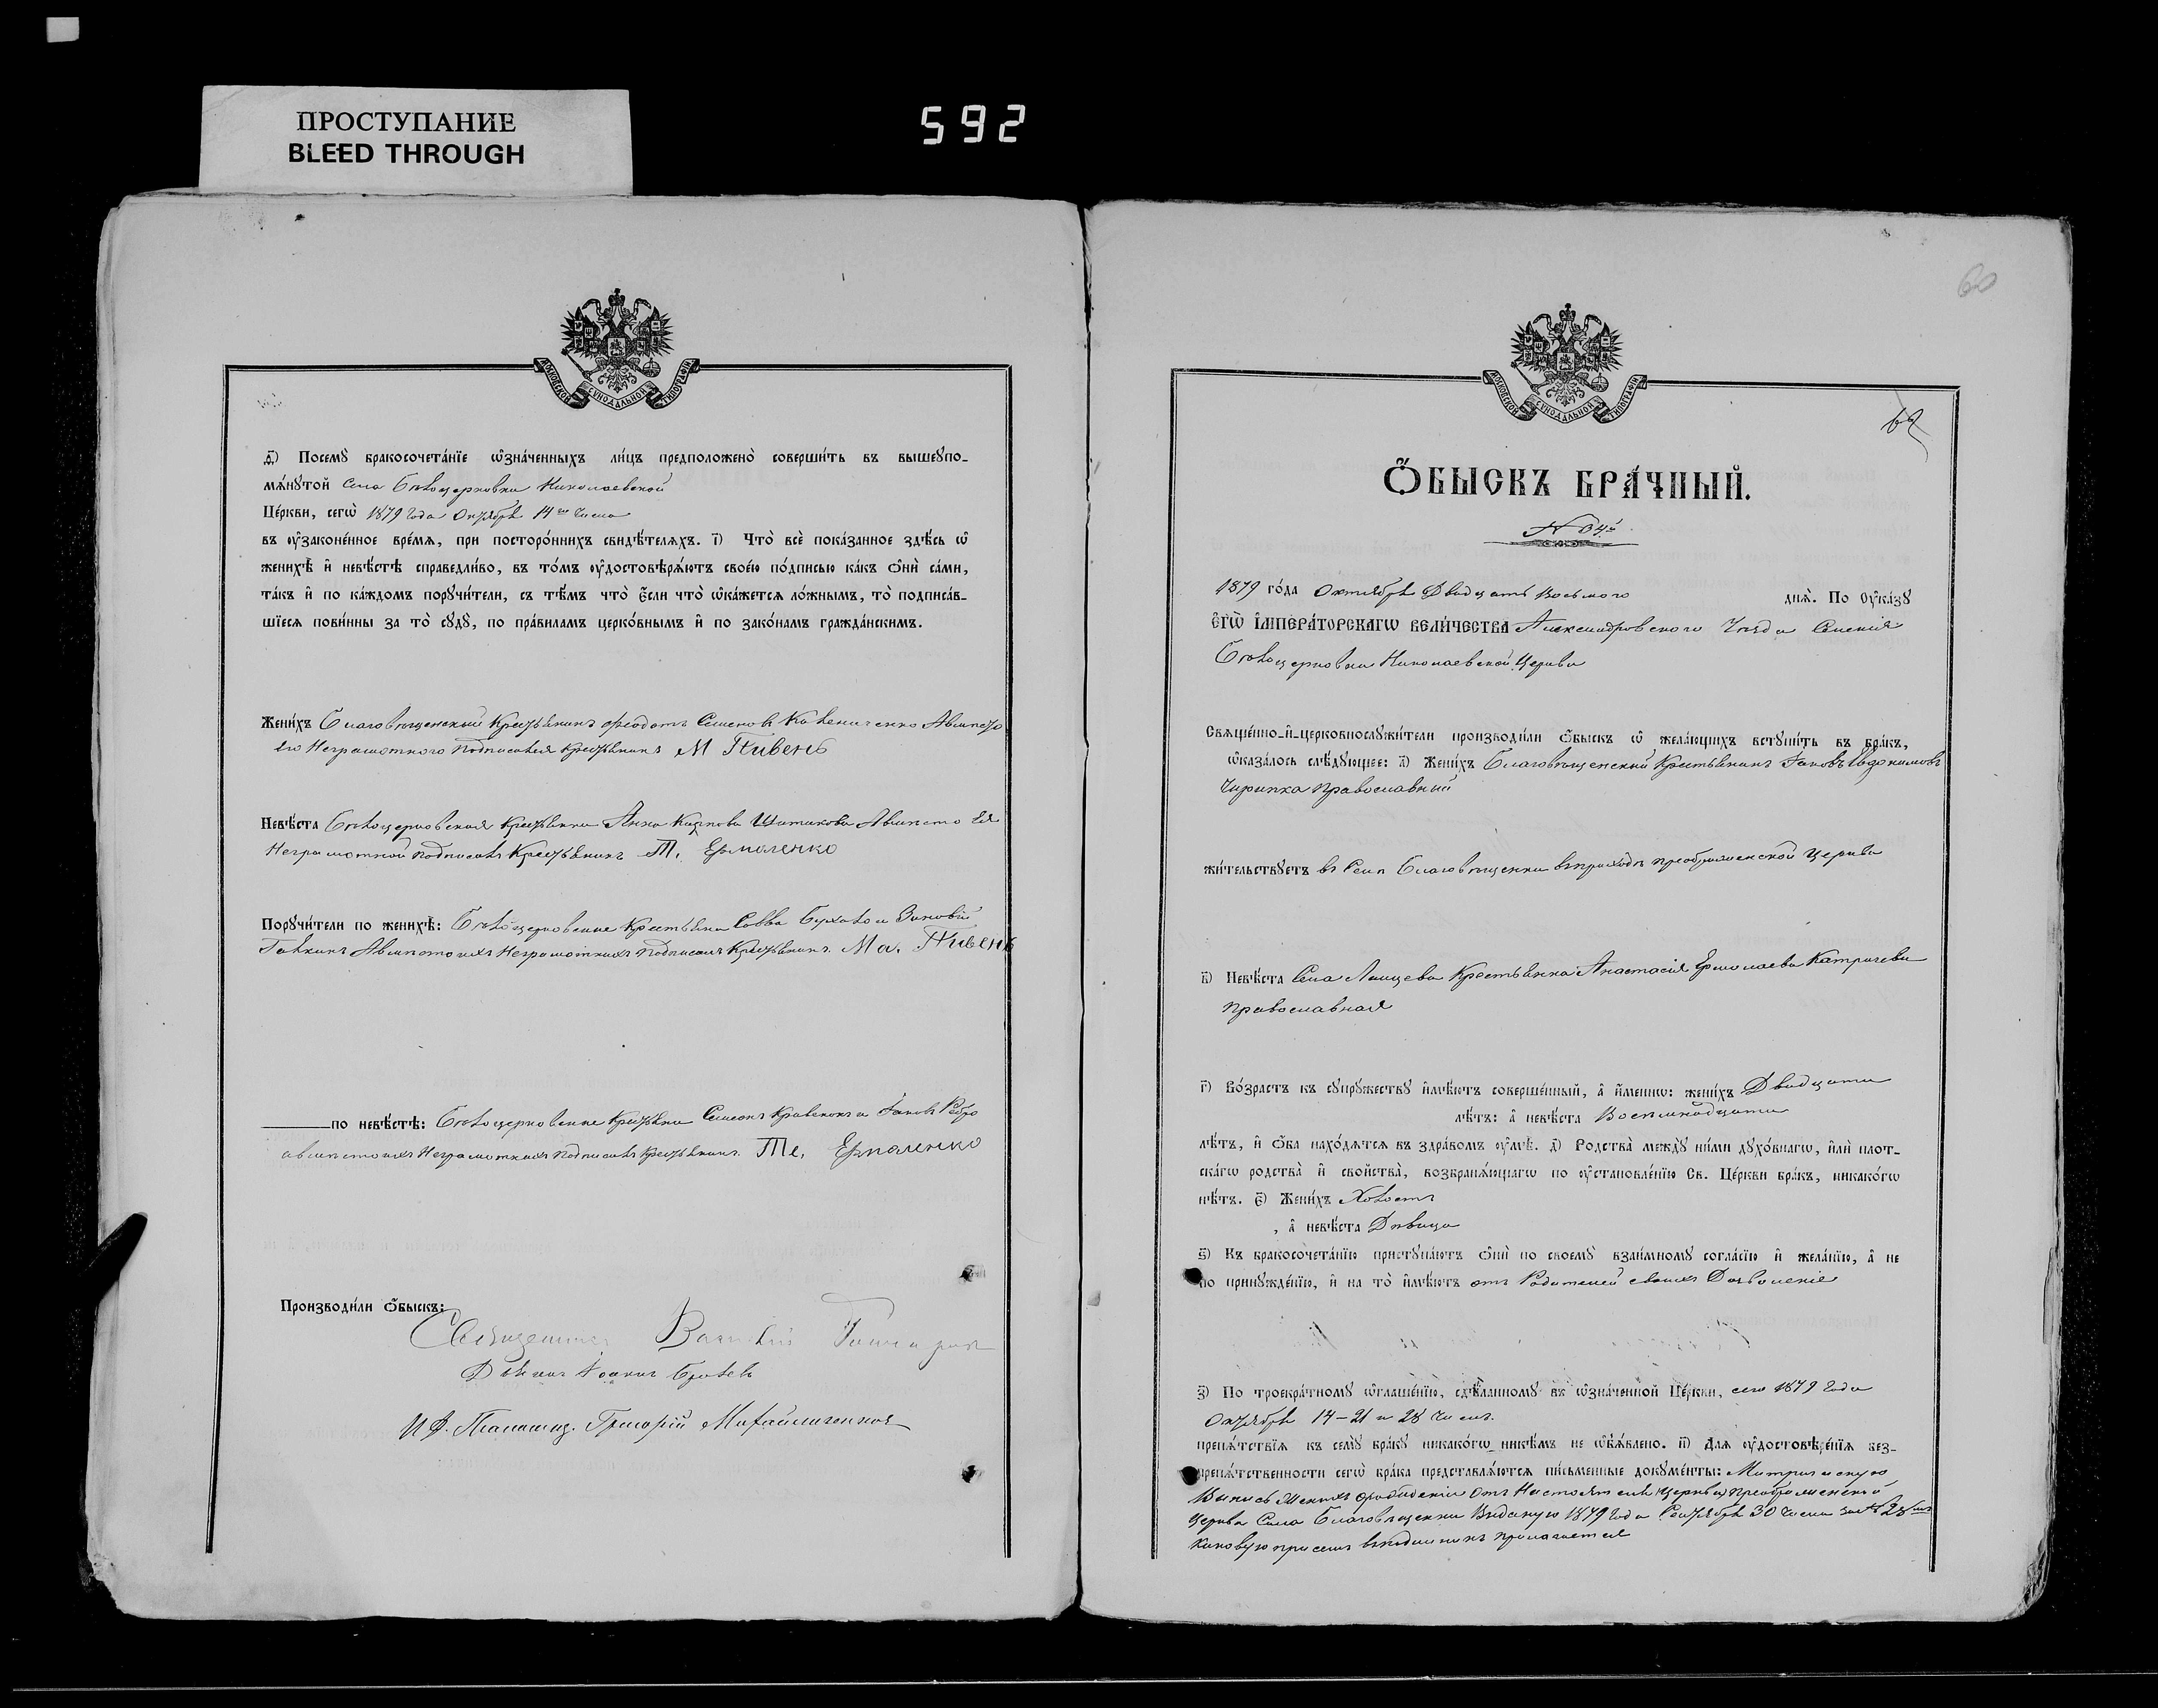 ПРОСТУПАНИЕ
BLEED THROUGH
592
МОСКОВСКОЙ СѴНОДАЛЬНОЙ ТИПОГРАФІИ
Посемꙋ бракосочета́нїе ѡ҆зна́ченныхъ ли́цъ предположено̀ соверши́ть въ вышеꙋпо-
мѧ́нꙋтой Села Бѣлоцерковки Николаевской
Це́ркви, сегѡ̀ 1879 года Октября 14го числа
въ ᲂу҆зако́ненное вре́мѧ, при посторо́ннихъ свидѣ́телѧхъ. і҃) Что̀ всѐ пока́занное здѣ́сь ѡ҆
женихѣ̀ и҆ невѣ́стѣ справедли́во, въ то́мъ ᲂу҆достовѣрѧ́ютъ свое́ю по́дписью ка́къ ѻ҆нѝ са́ми,
та́къ и҆ по ка́ждомъ порꙋчи́тели, съ тѣ́мъ что̀ є҆́сли что̀ ѡ҆ка́жетсѧ ло́жнымъ, то̀ подписа́в-
шїесѧ пови́нны за то̀ сꙋдꙋ̀, по пра́виламъ церко́внымъ и҆ по зако́намъ гражда́нскимъ.
Жени́хъ Благовѣщенскій Крестьянинъ Феодотъ Семеновъ
его Неграмотного подписался крестьянинъ М Пивень
Невѣ́ста Бѣлоцерковская Крестьянка Анна Карпова Шитикова Авместо Ея
Неграмотной подписалъ Крестьянинъ Т. Ермоленко
Порꙋчи́тели по женихѣ̀: Бѣлоцерковские Крестьяни Савва и Зиновій
Авместо ихъ Неграмотныхъ подписалъ Крестьянинъ Ма. Пивень
по невѣ́стѣ: Бѣлоцерковские Крестьяни Семеонъ и Іаковъ
авместо ихъ Неграмотныхъ подписалъ Крестьянинъ Те. Ермоленко
Производи́ли ѻ҆́быскъ:
Священникъ Василій
Дьяконъ Іоаннъ
И. д. Псаломщ. Григорій Михайличенко
60
МОСКОВСКОЙ СѴНОДАЛЬНОЙ ТИПОГРАФІИ
Ѻ҆́БЫСКЪ БРА́ЧНЫЙ.
1879 го́да Октября Двадцать Восьмого днѧ̀. По ᲂу҆ка́зꙋ
Є҆ГѠ̀ И҆МПЕРА́ТОРСКАГѠ ВЕЛИ́ЧЕСТВА Александровского Уезда Селения
Бѣлоцерковки Николаевской Церкви
Свѧще́нно-и҆-церковнослꙋжи́тели производи́ли ѻ҆́быскъ ѡ҆ жела́ющихъ встꙋпи́ть въ бра́къ,
ѡ҆каза́лось слѣ́дꙋющее: а҃) Жени́хъ Благовѣщенскій Крестьянинъ Іаковъ Евдокимовъ
Чирипка православный
жи́тельствꙋетъ въ Селѣ Благовѣщенки въ приходѣ преображенской Церкви
в҃) Невѣ́ста Села Ланцева Крестьянка Анастасія Ермолаева Катричева
православная
г҃) Во́зрастъ къ сꙋпрꙋ́жествꙋ и҆мѣ́ютъ соверше́нный, а҆ и҆́меннѡ: жени́хъ Двадцати
лѣ́тъ: а҆ невѣ́ста Восемнадцати
лѣ́тъ, и҆ ѻ҆́ба нахо́дѧтсѧ въ здра́вомъ ᲂу҆мѣ̀. д҃) Родства̀ междꙋ̀ ни́ми дꙋхо́внагѡ, и҆лѝ плот-
ска́гѡ родства̀ и҆ свойства̀, возбранѧ́ющагѡ по ᲂу҆становле́нїю Св. Це́ркви бра́къ, никако́гѡ
нѣ́тъ. є҃) Жени́хъ Холостъ
, а҆ невѣ́ста Дѣвица
ѕ҃) Къ бракосочета́нїю пристꙋпа́ютъ ѻ҆нѝ по своемꙋ̀ взаи́мномꙋ согла́сїю и҆ жела́нїю, а҆ не
по принꙋжде́нїю, и҆ на то̀ и҆мѣ́ютъ отъ Родителей своихъ Дозволеніе
з҃) По троекра́тномꙋ ѡ҆глаше́нїю, сдѣ́ланномꙋ въ ѡ҆зна́ченной Це́ркви, сего 1879 года
Октября 14–21 и 28 чиселъ.
препѧ́тствїѧ къ семꙋ̀ бра́кꙋ никако́гѡ никѣ́мъ не ѡ҆б̾ѧ́влено. и҃) Длѧ ᲂу҆достовѣре́нїѧ без-
препѧ́тственности сегѡ̀ бра́ка представлѧ́ютсѧ пи́сьменные докꙋме́нты: Метрическую
Выпись отъ Настоятеля Церкви преображенской
Церкви Села Благовѣщенки Выданую 1879 года Сентября 30 числа за № 28мъ
каковую при семъ прилагается